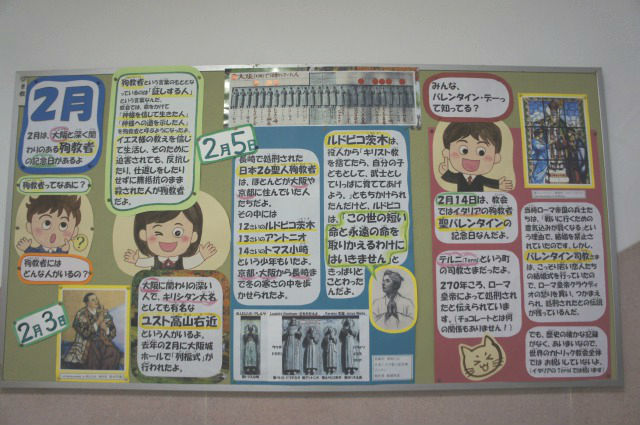 2月
2月は、大阪と深く関
わりのある殉教者
の記念日があるよ
殉教者ってなあに？
殉教者には
どんな人がいるの？
2月3日
殉教者という言葉のもととな
っているのは「証しする人」
という言葉なんだ。
教会では、命をかけて
「神様を信じて生きた人」
「神様への道を示した人」
を殉教者と呼ぶようになったよ。
イエス様の教えを信じ
て生活し、そのために
迫害されても、反抗し
たり、仕返しをしたり
せずに無抵抗のまま
殺された人が殉教者
だよ。
大阪に関わりの深い
人で、キリシタン大名
としても有名な
ユスト高山右近
という人がいるよ。
去年の2月に大阪城
ホールで「列福式」が
行われたよ。
2月5日
長崎で処刑された
日本26聖人殉教者
は、ほとんどが大阪や
京都に住んでいた人
たちだよ。
その中には
12さいのルドビコ茨木
13さいのアントニオ
14さいのトマス小崎
という少年もいたよ。
京都・大阪から長崎ま
で冬の寒さの中を歩
かせられたよ。
ルドビコ茨木は、
役人から「キリスト教
を捨てたら、自分の子
どもとして、武士とし
てりっぱに育ててあげ
よう。」ともちかけられ
たんだけど、ルドビコ
は、「この世の短い
命と永遠の命を
取りかえるわけに
はいきません」と
きっぱりと
ことわった
んだよ。
みんな、
バレンタイン・デーっ
て知ってる？
2月14日は、教会
ではイタリアの殉教者
聖バレンタインの
記念日なんだよ。
テルニ(Terni)という町
の司教さまだったよ。
270年ころ、ローマ
皇帝によって処刑され
たと伝えられていま
す。(チョコレートとは何
の関係もありません！)
当時ローマ帝国の兵士た
ちは、「戦いに行くための
意気込みが弱くなる」とい
う理由で、結婚を禁止さ
れていたのです。しかし、
バレンタイン司教さま
は、こっそり若い恋人たち
の結婚式を行っていたの
で、ローマ皇帝クラウディ
オの怒りを買い、つかまえ
られ、処刑されたとの伝説
が残っているんだ。
でも、歴史の確かな記録
がなく、あいまいなので、
世界のカトリック教会全体
では お祝いしていないよ。
(イタリアの Terni では祝います)